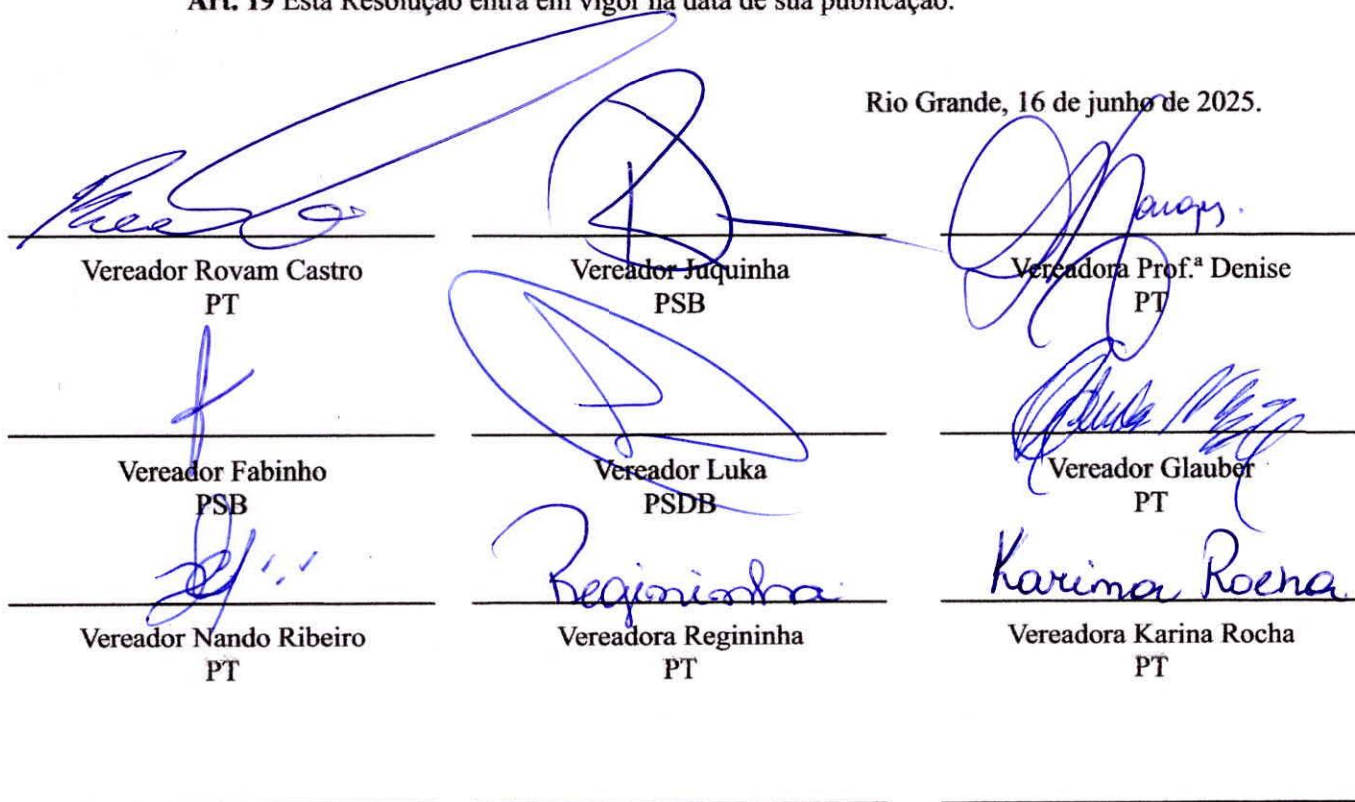 Art. 19 Esta Resolução entra em vigor na data de sua publicação.
Rio Grande, 16 de junho de 2025.
Vereador Rovam Castro
PT
Vereador Juquinha
PSB
Vereadora Prof.ª Denise
PT
Vereador Fabinho
PSB
Vereador Luka
PSDB
Vereador Glauber
PT
Regininha
Karina Rocha
Vereador Nando Ribeiro
PT
Vereadora Regininha
PT
Vereadora Karina Rocha
PT